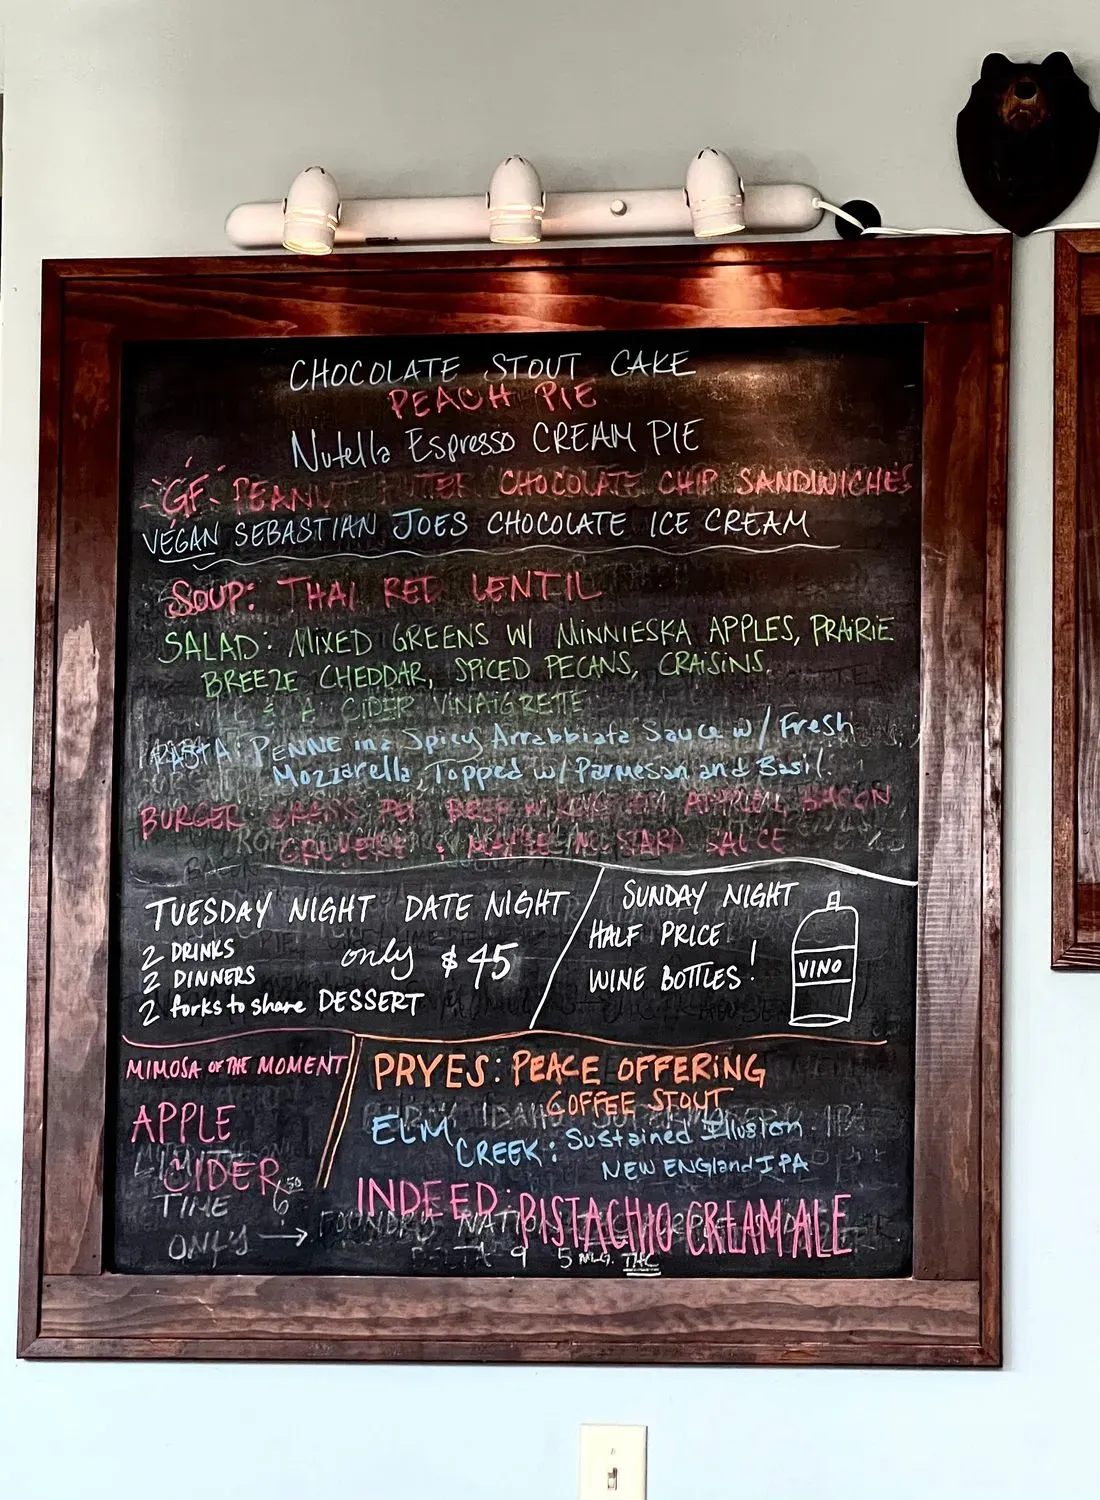 CHOCOLATE STOUT CAKE
PEACH PIE
Nutella Espresso CREAM PIE
GF PEANUT BUTTER CHOCOLATE CHIP SANDWICHES
VEGAN SEBASTIAN JOES CHOCOLATE ICE CREAM
SOUP: THAI RED LENTIL
SALAD: MIXED GREENS W/ MINNIESKA APPLES, PRAIRIE
BREEZE CHEDDAR, SPICED PECANS, CRAISINS.
& A CIDER VINAIGRETTE
PASTA: PENNE in a Spicy Arrabbiata Sauce w/ Fresh
Mozzarella, Topped w/ Parmesan and Basil.
BURGER GRASS FED BEEF W/ APPLE BACON
GRUYERE & MUSTARD SAUCE
TUESDAY NIGHT DATE NIGHT
2 DRINKS
2 DINNERS
2 forks to share DESSERT
only $45
SUNDAY NIGHT
HALF PRICE
WINE BOTTLES!
VINO
MIMOSA OF THE MOMENT
APPLE
CIDER 6.50
LIMITED
TIME
ONLY →
PRYES: PEACE OFFERING
COFFEE STOUT
ELM
CREEK: Sustained Illusion
NEW ENGLAND IPA
INDEED: PISTACHIO CREAM ALE
5 MLG. THC